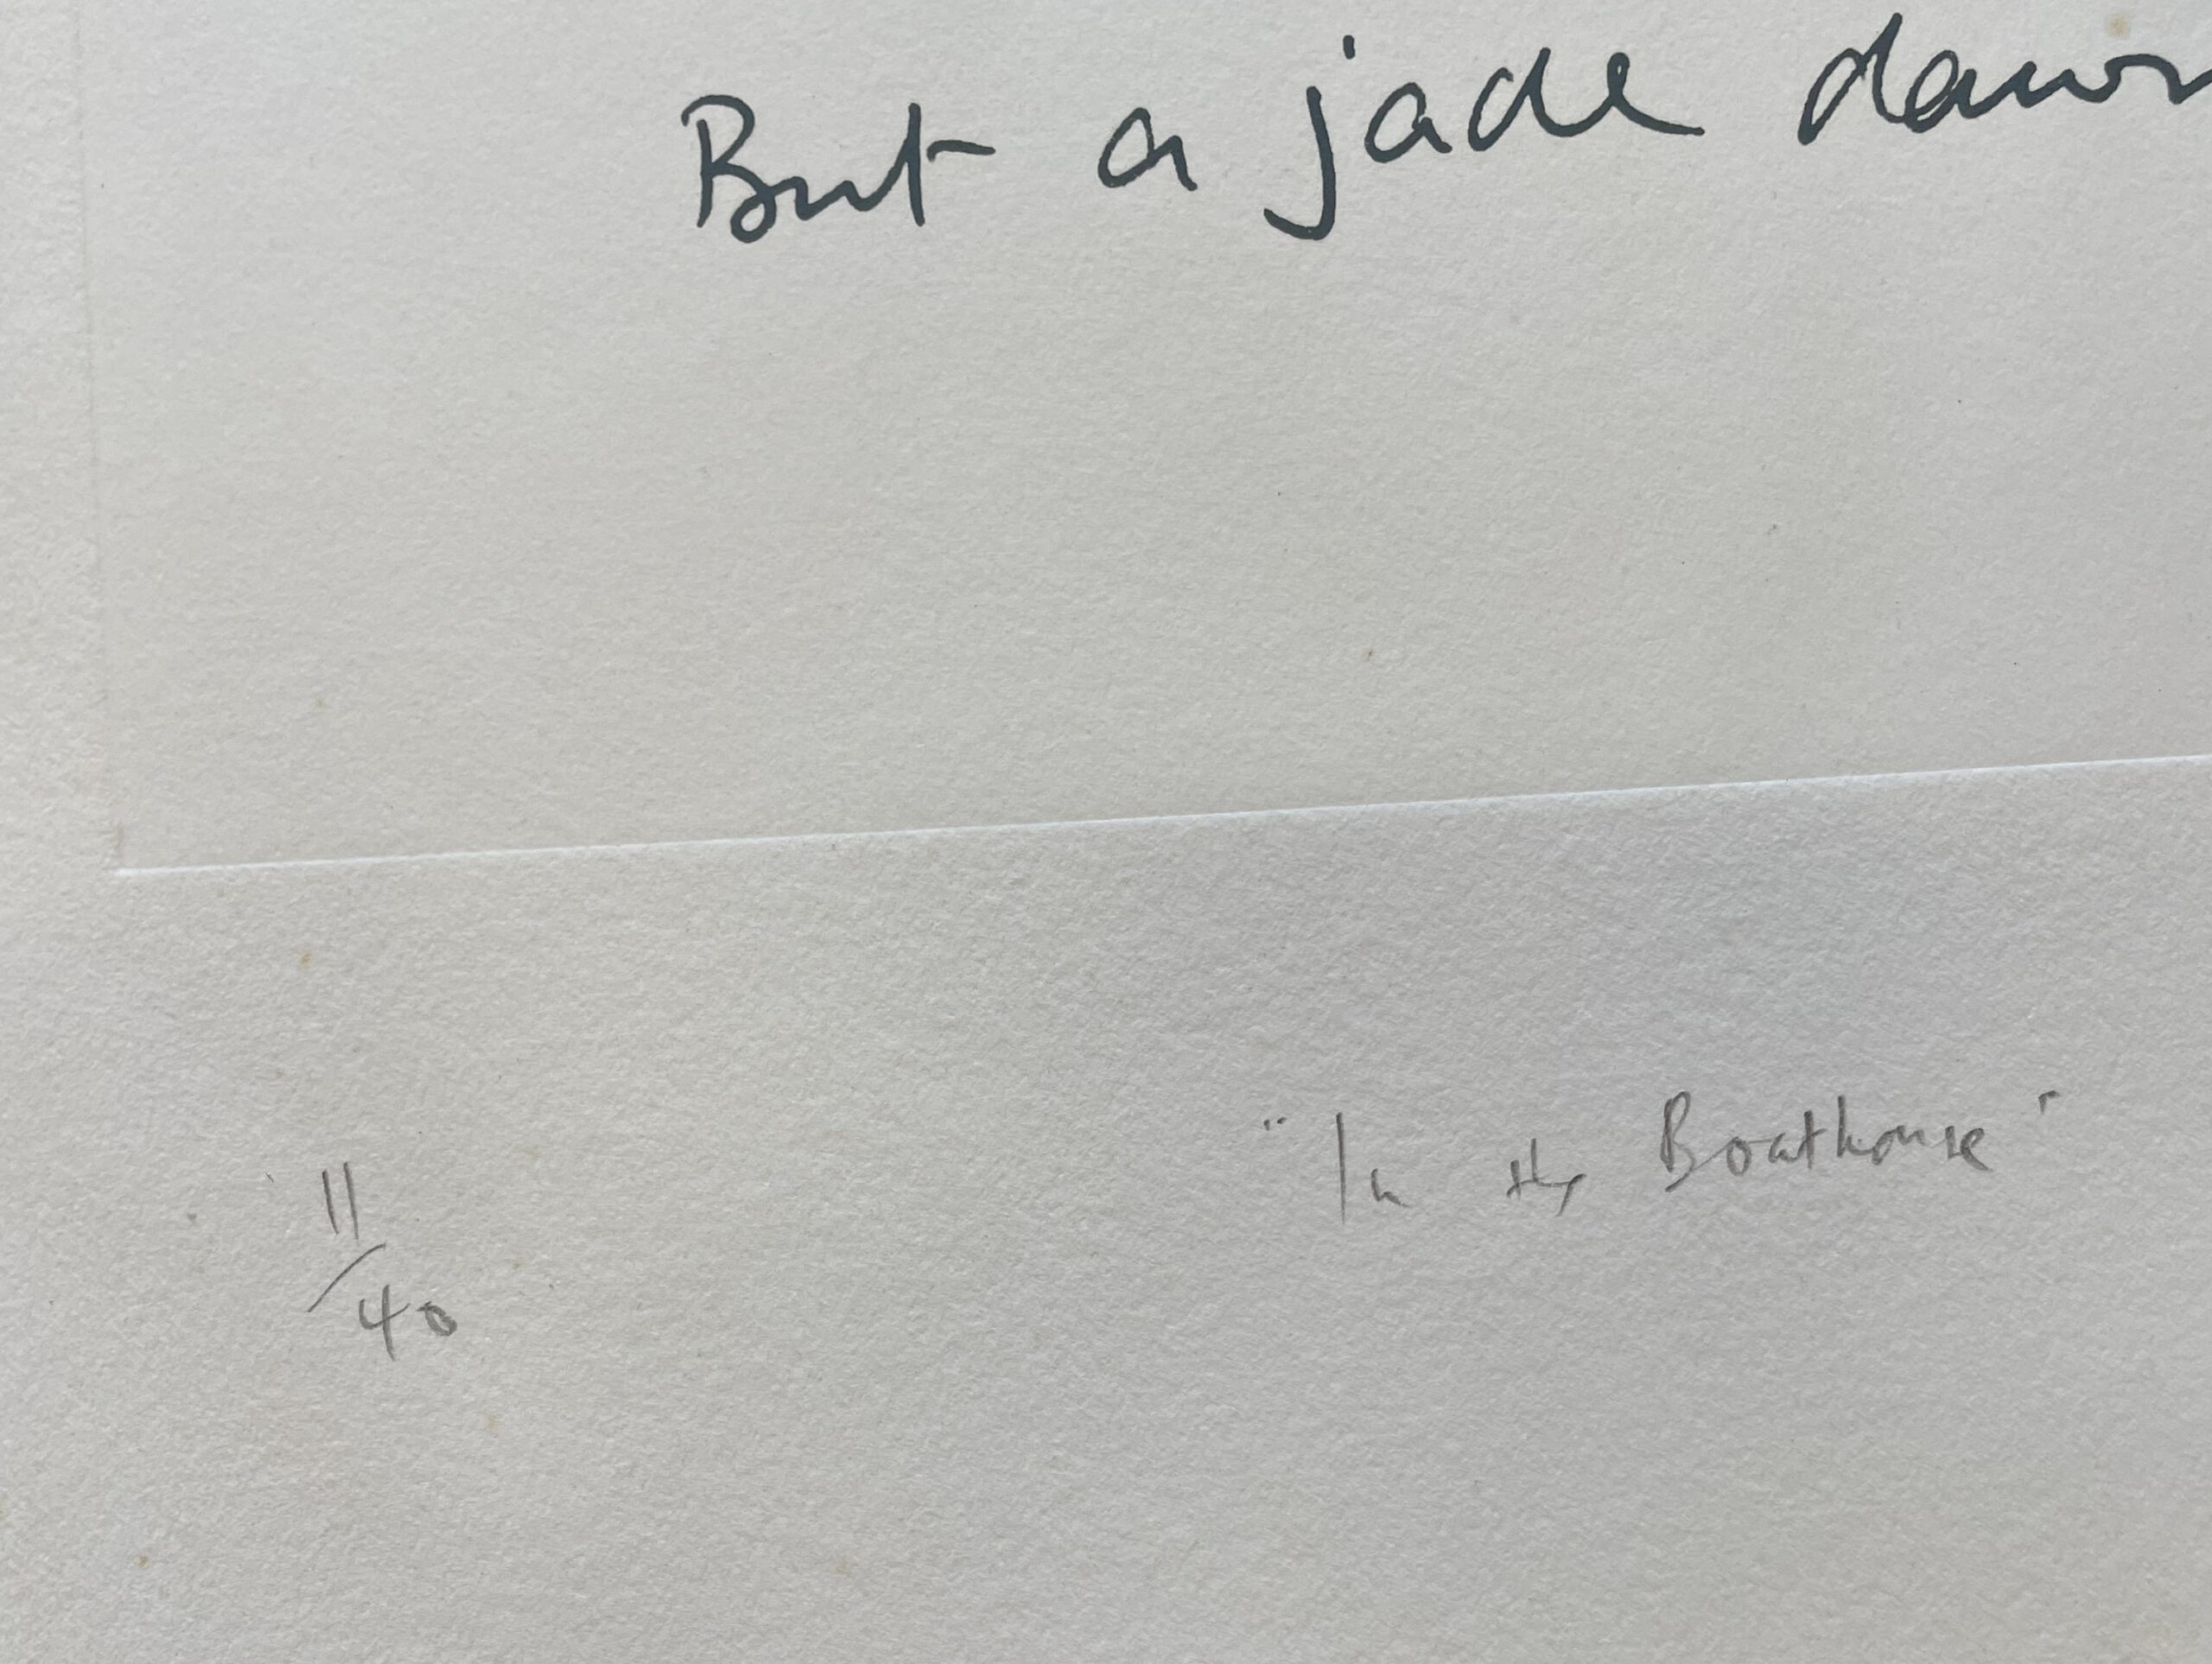 But a jade dawn
"In the Boathouse"
11/40